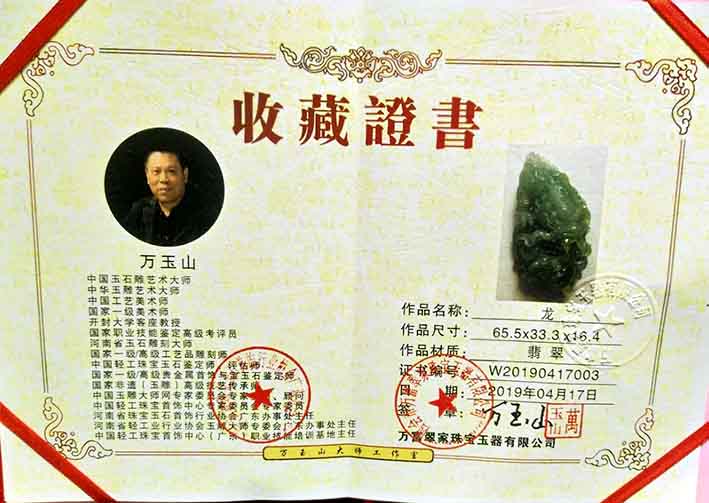 收藏證書
万玉山
中国玉石雕艺术大师
中华玉雕艺术大师
中国工艺美术师
国家一级美术师
开封大学客座教授
国家职业技能鉴定高级考评员
河南省玉石雕刻大师
国家一级/高级工艺品雕刻师
中国轻工珠宝玉石鉴定师、评估师
国家一级/高级贵金属首饰与宝玉石鉴定师
国家非遗(玉雕)高级技艺传承师
中国玉雕大师网专家委员会专家、顾问
中国轻工珠宝首饰中心专家委员会专家委员
河南省珠宝玉石首饰行业协会广东办事处主任
河南省轻工业行业协会玉雕大师专委会广东办事处主任
中国轻工珠宝首饰中心(广东)职业技能培训基地主任
作品名称: 龙
作品尺寸: 65.5x33.3x16.4
作品材质: 翡翠
证书编号: W20190417003
日 期: 2019年04月17日
签 章: 万玉山
萬玉山
万富翠家珠宝玉器有限公司
万玉山大师工作室